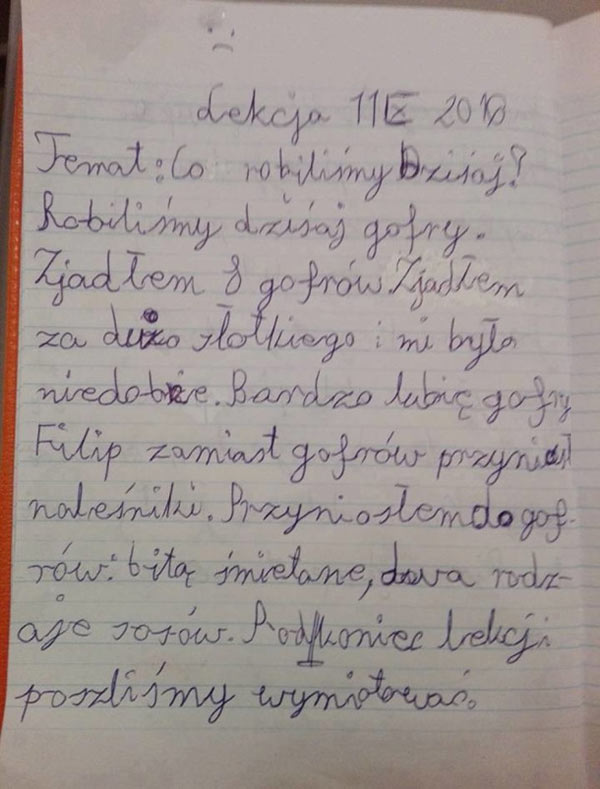 Lekcja 11 IX 2018
Temat: Co robiliśmy Dzisiaj?
Robiliśmy dzisaj gofry.
Zjadłem 8 gofrów Zjadłem
za dużo słotkiego i mi było
niedobrze. Bardzo lubię gofry
Filip zamiast gofrów przyniósł
naleśniki. Przyniosłem do gof-
rów: bitą śmietane, dwa rodz-
aje sosów. Pod koniec lekcji
poszliśmy wymiotować.